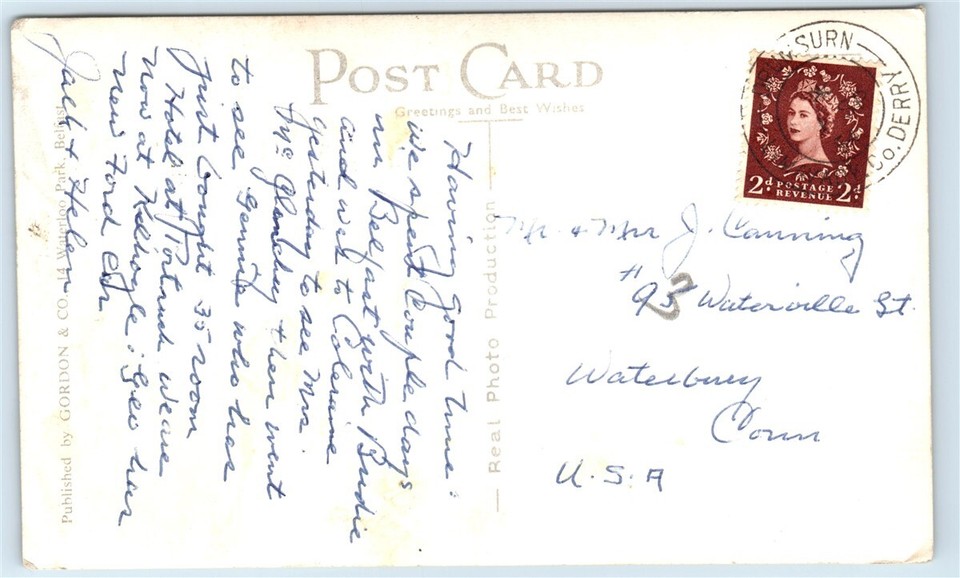 POST CARD
Greetings and Best Wishes
Having good time.
We spent Couple days
in Belfast with Birdie
and wet to Coleraine
yesterday to see Mrs
Mc Glinchey & then went
to see Gerring who has
Just bought 35 room
Hotel at Portrush we are
now at Kilhoyle. Geo has
new Ford Car
Jack & Helen
Published by GORDON & CO. 14 Waterloo Park, Belfast
Real Photo Production
BURN
Co. DERRY
2d POSTAGE REVENUE 2d
Mr & Mrs J. Canning
# 93 Waterville St.
Waterbury
Conn
U.S.A